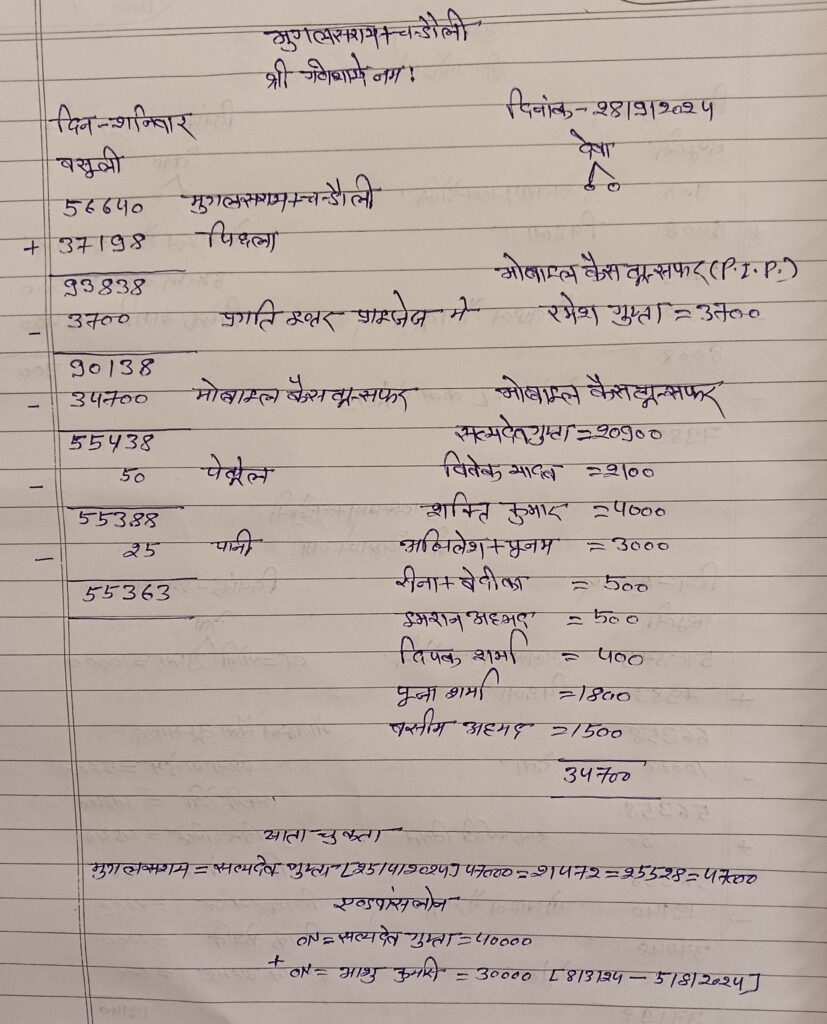 मुगलसराय+चन्डौली
श्री गणेशाये नम!
दिन-शनिवार दिनांक-28/9/2024
बसूली देवा
56640 मुगलसराय+चन्डौली
+ 37198 पिछला
93838 मोबाइल कैस ट्रान्सफर (P.I.P.)
- 3700 प्रगति इन्टर प्राइजेज मे रमेश गुप्ता = 3700
90138
- 34700 मोबाइल कैस ट्रान्सफर मोबाइल कैस ट्रान्सफर
55438 सत्यदेव गुप्ता = 20900
- 50 पेट्रोल विवेक यादव = 2100
55388 शक्ति कुमार = 4000
- 25 पानी अखिलेश+पूनम = 3000
55363 रीना+बेदीका = 500
इमरान अहमद = 500
दिपक शर्मा = 400
पूजा शर्मा = 1800
बसीम अहमद = 1500
34700
खाता चुकता
मुगलसराय = सत्यदेव गुप्ता [25/4/2024] 47000 = 21472 = 25528 = 4700
एडवांस लोन
ON = सत्यदेव गुप्ता = 40000
+ ON = कुमारी = 30000 [8/3/24 - 5/8/2024]